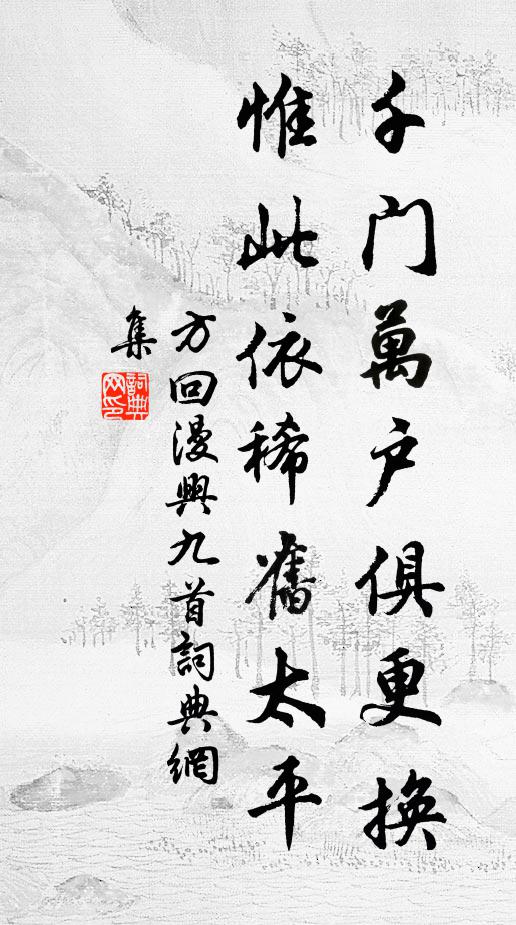 千門萬户俱更換
惟此依稀舊太平
方回漫興九首詞典網
集
詞典网印